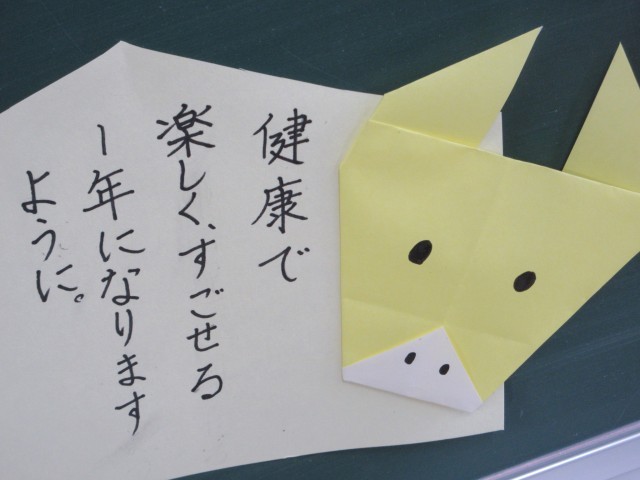 健康で
楽しく、すごせる
1年になります
ように。